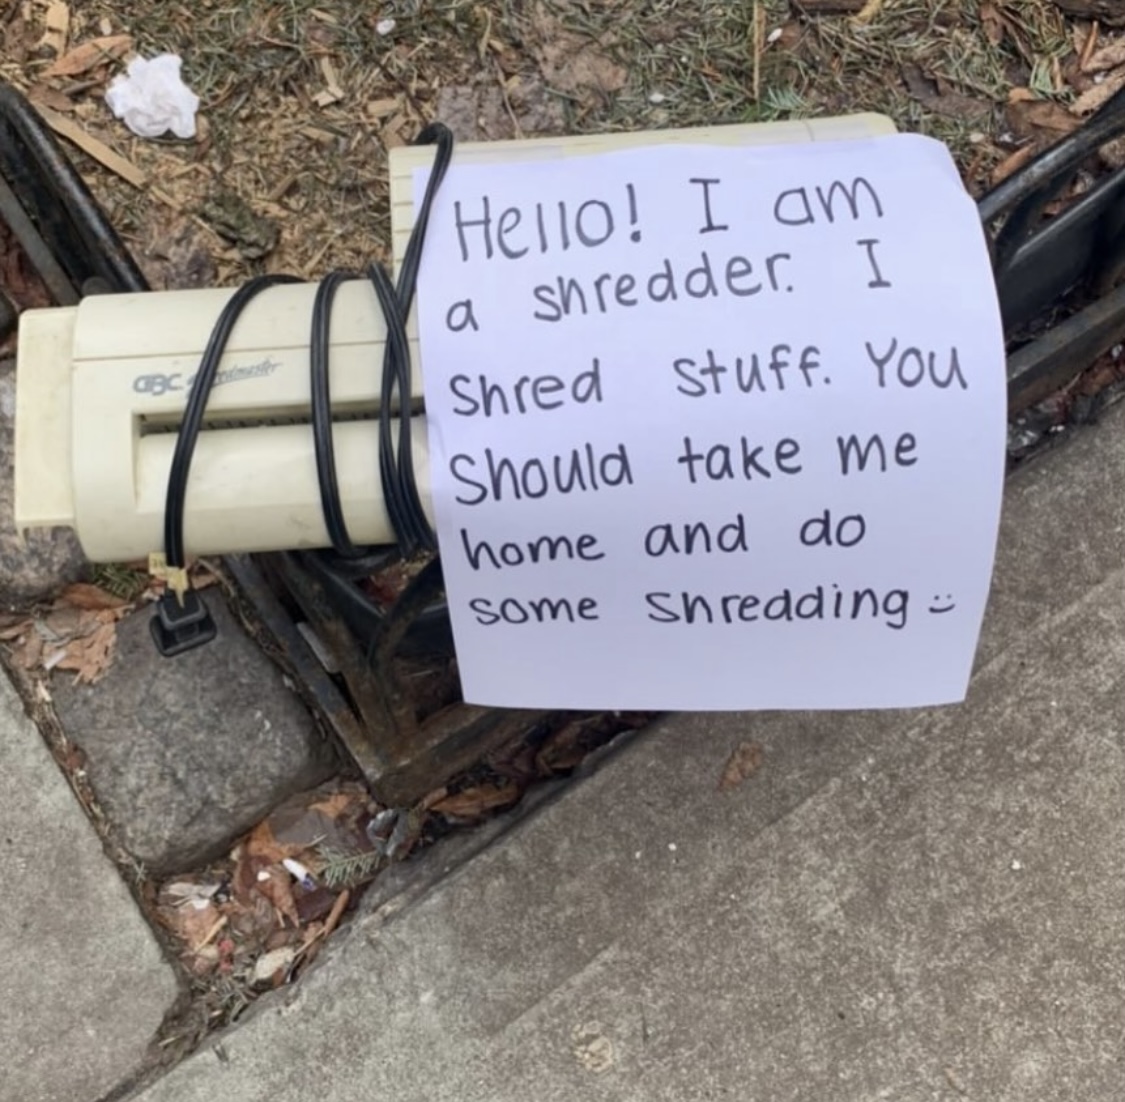 GBC
Hello! I am
a shredder. I
Shred stuff. You
Should take me
home and do
some shredding :)